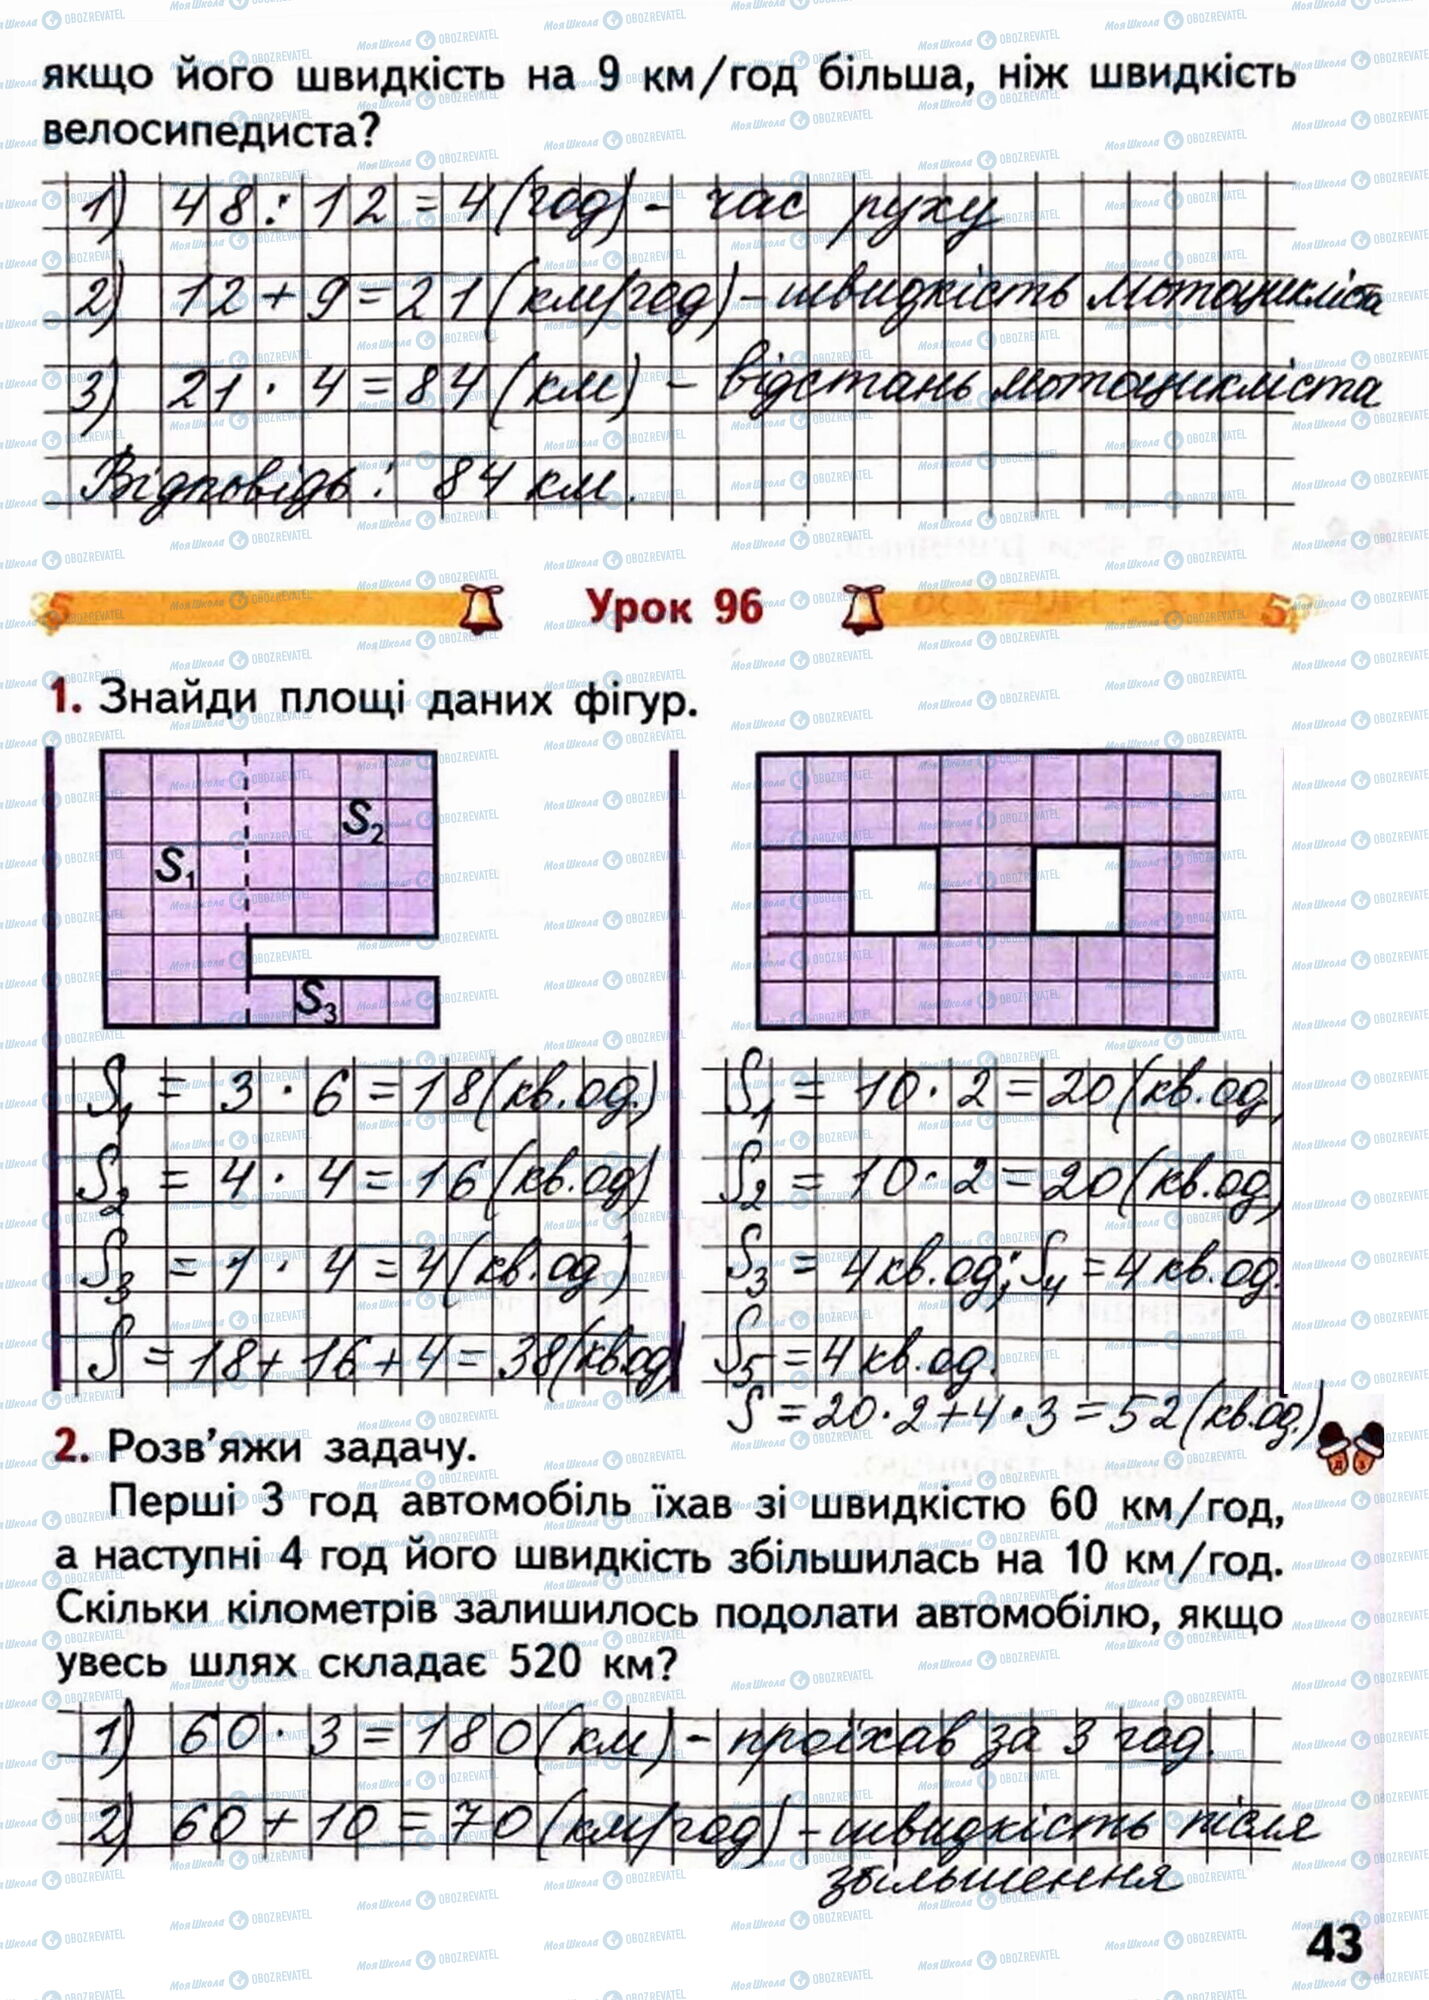 якщо його швидкість на 9 км/год більша, ніж швидкість
велосипедиста?
1) 48 : 12 = 4 (год) - час руху
2) 12 + 9 = 21 (км/год) - швидкість мотоцикліста
3) 21 · 4 = 84 (км) - відстань мотоцикліста
Відповідь: 84 км.
Урок 96
1. Знайди площі даних фігур.
S₁ S₂ S₃
S₁ = 3 · 6 = 18 (кв.од.)
S₂ = 4 · 4 = 16 (кв.од)
S₃ = 1 · 4 = 4 (кв.од)
S = 18 + 16 + 4 = 38 (кв.од)
S₁ = 10 · 2 = 20 (кв.од.)
S₂ = 10 · 2 = 20 (кв.од.)
S₃ = 4 кв.од; S₄ = 4 кв.од.
S₅ = 4 кв.од.
S = 20 · 2 + 4 · 3 = 52 (кв.од.)
2. Розв’яжи задачу.
Перші 3 год автомобіль їхав зі швидкістю 60 км/год,
а наступні 4 год його швидкість збільшилась на 10 км/год.
Скільки кілометрів залишилось подолати автомобілю, якщо
увесь шлях складає 520 км?
1) 60 · 3 = 180 (км) - проїхав за 3 год.
2) 60 + 10 = 70 (км/год) - швидкість після
збільшення
43
МояШкола OBOZREVATEL